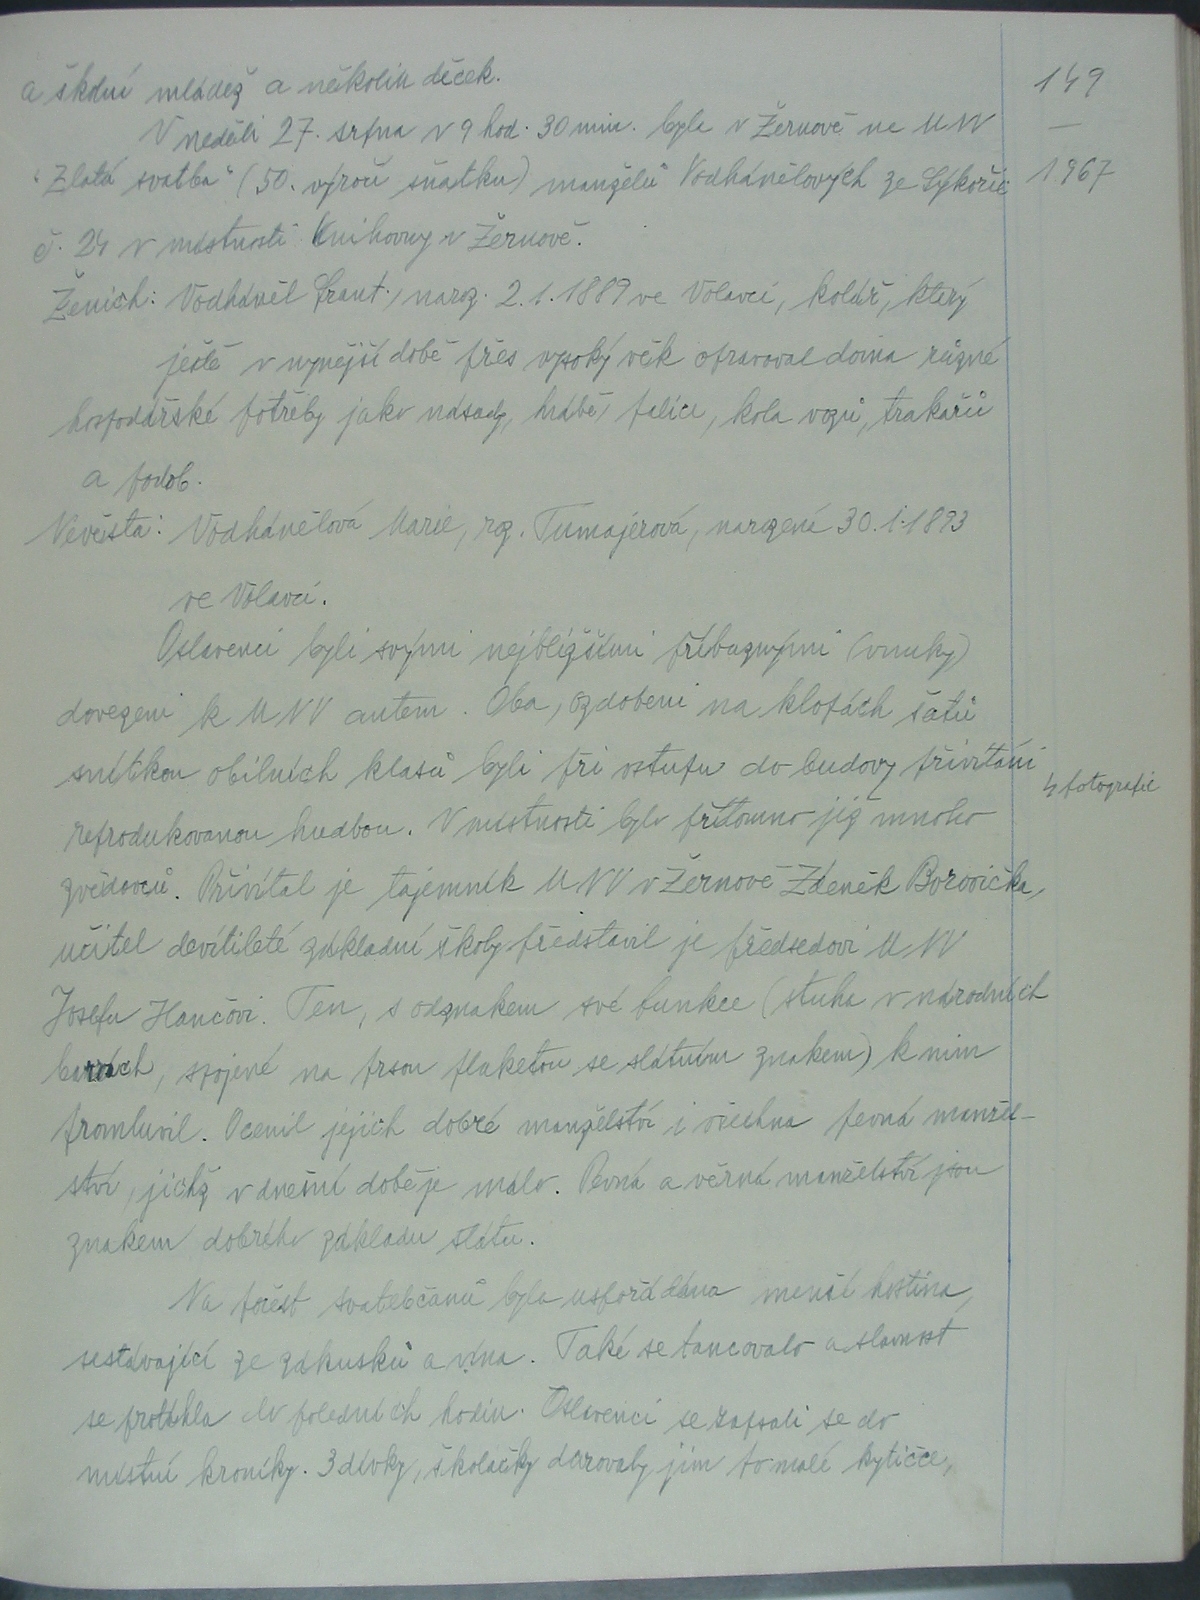 149
a školní mládež a několik děček.
V neděli 27. srpna v 9 hod. 30 min. byla v Žernově na MNV
1967
"Zlatá svatba" (50. výročí sňatku) manželů Vodhánělových ze Sýkořic
č. 24 v místnosti knihovny v Žernově.
Ženich: Vodháněl Frant., naroz. 2.1.1889 ve Volavci, kolář, který
ještě v nynější době přes vysoký věk opravoval doma různé
hospodářské potřeby jako násady, hrábě, palice, kola vozů, trakařů
a podob.
Nevěsta: Vodhánělová Marie, roz. Tumajerová, narozená 30.1.1893
ve Volavci.
Oslavenci byli svými nejbližšími příbuznými (vnuky)
dovezeni k MNV autem. Oba, ozdobeni na klopách šatů
snítkou obilních klasů byli při vstupu do budovy přivítáni
4 fotografie
reprodukovanou hudbou. V místnosti bylo přítomno již mnoho
zvědavců. Přivítal je tajemník MNV v Žernově Zdeněk Borovička,
učitel devítileté základní školy představil je předsedovi MNV
Josefu Hančovi. Ten, s odznakem své funkce (stuha v národních
barvách, spojené na prsou plaketou se státním znakem) k nim
promluvil. Ocenil jejich dobré manželství i všechna pevná manžel-
ství, jichž v dnešní době je málo. Pevná a věrná manželství jsou
znakem dobrého základu státu.
Na počest svatebčanů byla uspořádána menší hostina,
sestávající ze zákusků a vína. Také se tancovalo a slavnost
se protáhla do poledních hodin. Oslavenci se zapsali se do
místní kroniky. 3 dívky, školačky darovaly jim to malé kytičce,